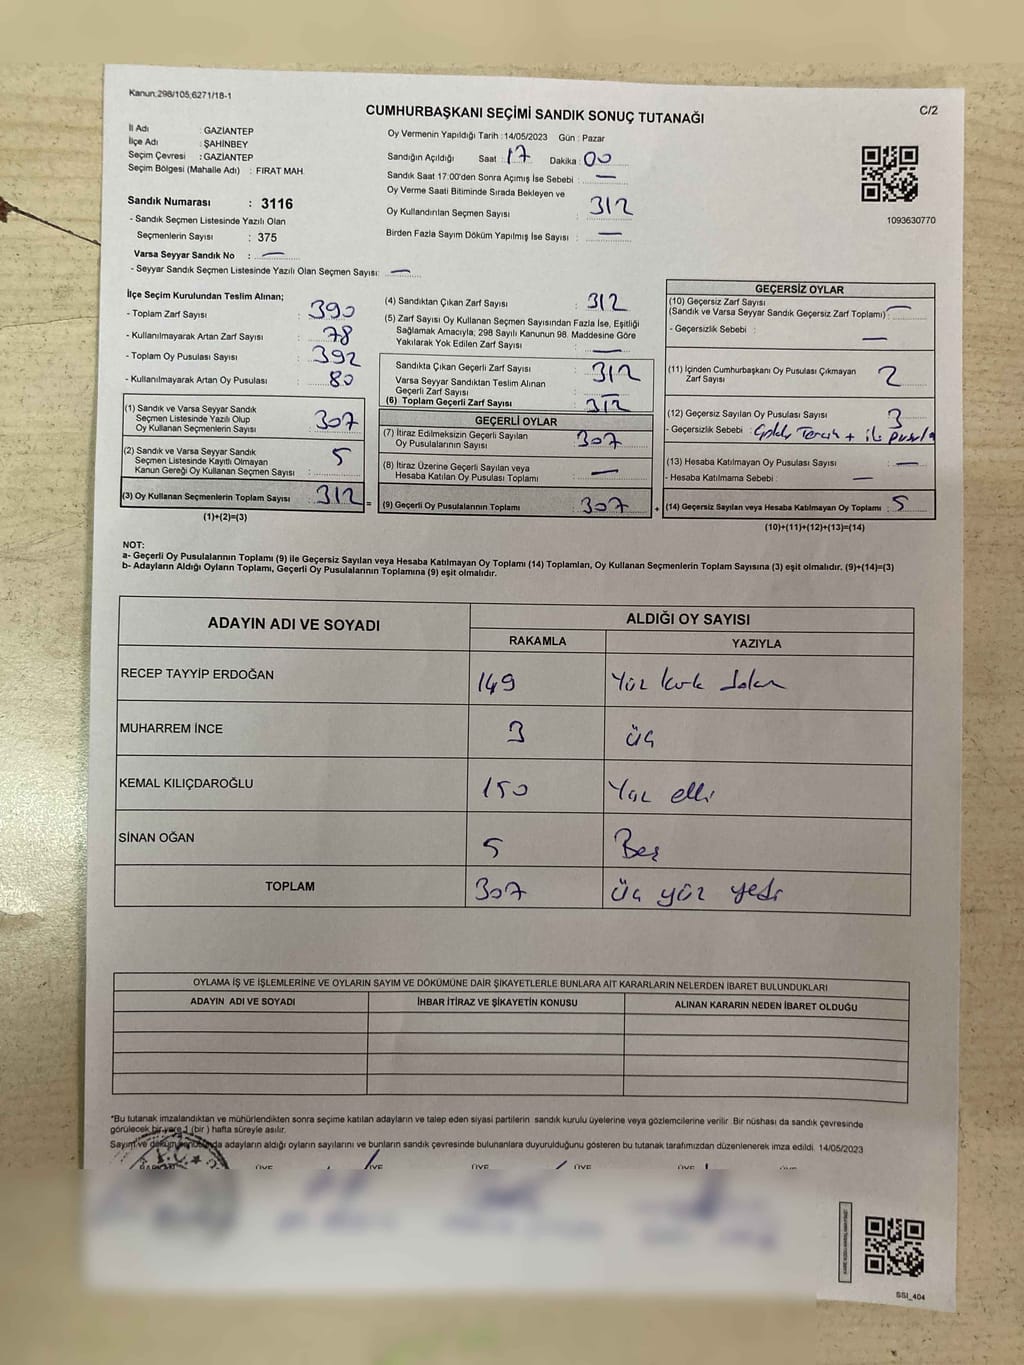 Kanun:298/105,6271/18-1
CUMHURBAŞKANI SEÇİMİ SANDIK SONUÇ TUTANAĞI
C/2
İl Adı : GAZİANTEP
İlçe Adı : ŞAHİNBEY
Seçim Çevresi : GAZİANTEP
Seçim Bölgesi (Mahalle Adı) : FIRAT MAH.
Sandık Numarası : 3116
- Sandık Seçmen Listesinde Yazılı Olan
Seçmenlerin Sayısı : 375
Varsa Seyyar Sandık No : —
- Seyyar Sandık Seçmen Listesinde Yazılı Olan Seçmen Sayısı: —
Oy Vermenin Yapıldığı Tarih : 14/05/2023 Gün : Pazar
Sandığın Açıldığı Saat : 17 Dakika : 00
Sandık Saat 17:00'den Sonra Açımış İse Sebebi : —
Oy Verme Saati Bitiminde Sırada Bekleyen ve
Oy Kullandırılan Seçmen Sayısı : 312
Birden Fazla Sayım Döküm Yapılmış İse Sayısı : —
1093630770
İlçe Seçim Kurulundan Teslim Alınan;
- Toplam Zarf Sayısı : 390
- Kullanılmayarak Artan Zarf Sayısı : 78
- Toplam Oy Pusulası Sayısı : 392
- Kullanılmayarak Artan Oy Pusulası : 80
(1) Sandık ve Varsa Seyyar Sandık
Seçmen Listesinde Yazılı Olup
Oy Kullanan Seçmenlerin Sayısı : 307
(2) Sandık ve Varsa Seyyar Sandık
Seçmen Listesinde Kayıtlı Olmayan
Kanun Gereği Oy Kullanan Seçmen Sayısı : 5
(3) Oy Kullanan Seçmenlerin Toplam Sayısı : 312 =
(1)+(2)=(3)
(4) Sandıktan Çıkan Zarf Sayısı : 312
(5) Zarf Sayısı Oy Kullanan Seçmen Sayısından Fazla İse, Eşitliği
Sağlamak Amacıyla; 298 Sayılı Kanunun 98. Maddesine Göre
Yakılarak Yok Edilen Zarf Sayısı : —
Sandıkta Çıkan Geçerli Zarf Sayısı : 312
Varsa Seyyar Sandıktan Teslim Alınan
Geçerli Zarf Sayısı :
(6) Toplam Geçerli Zarf Sayısı : 312
GEÇERLİ OYLAR
(7) İtiraz Edilmeksizin Geçerli Sayılan
Oy Pusulalarının Sayısı : 307
(8) İtiraz Üzerine Geçerli Sayılan veya
Hesaba Katılan Oy Pusulası Toplamı : —
(9) Geçerli Oy Pusulalarının Toplamı : 307 +
GEÇERSİZ OYLAR
(10) Geçersiz Zarf Sayısı
(Sandık ve Varsa Seyyar Sandık Geçersiz Zarf Toplamı) : —
- Geçersizlik Sebebi : —
(11) İçinden Cumhurbaşkanı Oy Pusulası Çıkmayan
Zarf Sayısı : 2
(12) Geçersiz Sayılan Oy Pusulası Sayısı : 3
- Geçersizlik Sebebi : Tercih +
(13) Hesaba Katılmayan Oy Pusulası Sayısı : —
- Hesaba Katılmama Sebebi : —
(14) Geçersiz Sayılan veya Hesaba Katılmayan Oy Toplamı : 5
(10)+(11)+(12)+(13)=(14)
NOT:
a- Geçerli Oy Pusulalarının Toplamı (9) ile Geçersiz Sayılan veya Hesaba Katılmayan Oy Toplamı (14) Toplamları, Oy Kullanan Seçmenlerin Toplam Sayısına (3) eşit olmalıdır. (9)+(14)=(3)
b- Adayların Aldığı Oyların Toplamı, Geçerli Oy Pusulalarının Toplamına (9) eşit olmalıdır.
ADAYIN ADI VE SOYADI
ALDIĞI OY SAYISI
RAKAMLA YAZIYLA
RECEP TAYYİP ERDOĞAN 149 Yüz kırk dokuz
MUHARREM İNCE 3 üç
KEMAL KILIÇDAROĞLU 150 Yüz elli
SİNAN OĞAN 5 Beş
TOPLAM 307 üç yüz yedi
OYLAMA İŞ VE İŞLEMLERİNE VE OYLARIN SAYIM VE DÖKÜMÜNE DAİR ŞİKAYETLERLE BUNLARA AİT KARARLARIN NELERDEN İBARET BULUNDUKLARI
ADAYIN ADI VE SOYADI İHBAR İTİRAZ VE ŞİKAYETİN KONUSU ALINAN KARARIN NEDEN İBARET OLDUĞU
*Bu tutanak imzalandıktan ve mühürlendikten sonra seçime katılan adayların ve talep eden siyasi partilerin sandık kurulu üyelerine veya gözlemcilerine verilir. Bir nüshası da sandık çevresinde
görülecek bir yere 1 (bir ) hafta süreyle asılır.
Sayım ve dökümü sonunda adayların aldığı oyların sayılarını ve bunların sandık çevresinde bulunanlara duyurulduğunu gösteren bu tutanak tarafımızdan düzenlenerek imza edildi. 14/05/2023
T.C.
ÜYE ÜYE ÜYE ÜYE ÜYE ÜYE
SSI_404